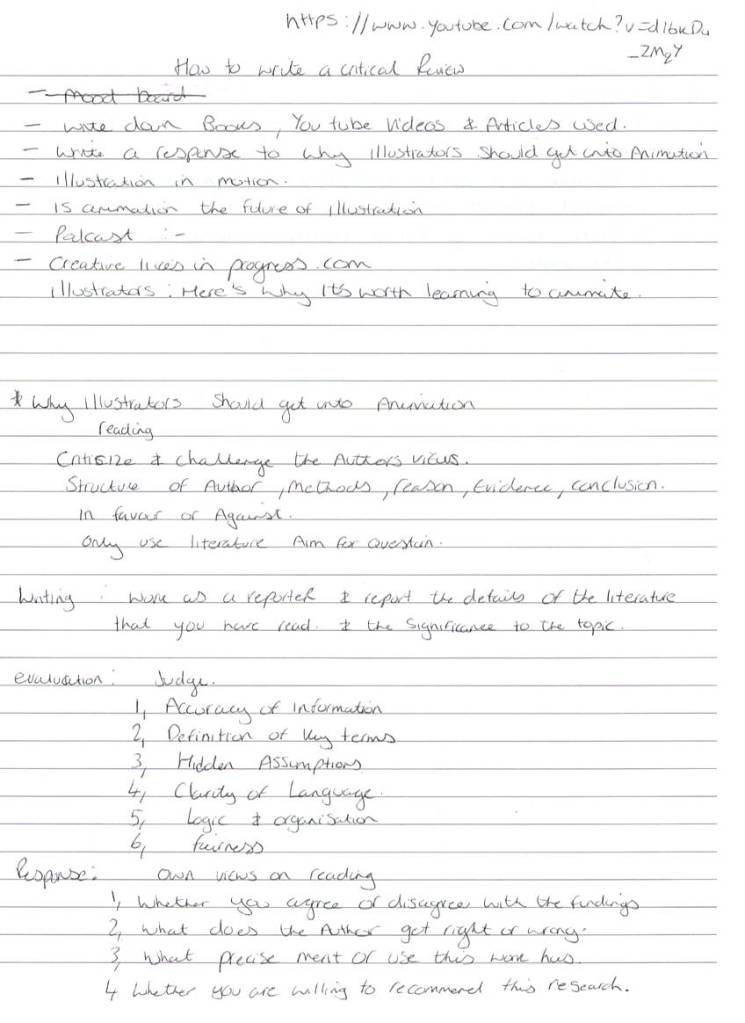 https://www.youtube.com/watch?v=d16kDu
_2MgY
How to write a critical Review
- Mood board
- write down Books, You tube Videos & Articles used.
- Write a response to why illustrators should get into Animation
- Illustration in motion.
- Is animation the future of illustration
- Palcast :-
- Creative lives in progress.com
illustrators: Here's why It's worth learning to animate.
* Why illustrators should get into Animation
reading
Critisize & challenge the Authors views.
Structure of Author, Methods, reason, Evidence, conclusion.
In favour or Against.
Only use literature Aim for Question.
Writing : Work as a reporter & report the details of the literature
that you have read. & the Significance to the topic.
evaluation : Judge.
1, Accuracy of information
2, Definition of key terms
3, Hidden Assumptions
4, Clarity of Language.
5, Logic & organisation
6, fairness
Response: Own views on reading
1, Whether you agree or disagree with the findings
2, What does the Author get right or wrong.
3, What precise merit or use this work has.
4 Whether you are willing to recommend this research.